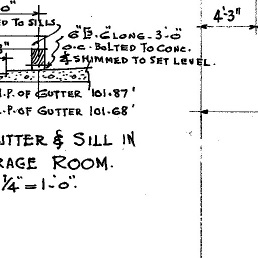 0"
4'-3"
ED TO SILLS.
6" [ - 6" LONG - 3'-0"
O.C. BOLTED TO CONC.
& SHIMMED TO SET LEVEL.
.P. OF GUTTER 101.87'
.P. OF GUTTER 101.68'
UTTER & SILL IN
RAGE ROOM.
1/4" = 1'-0".